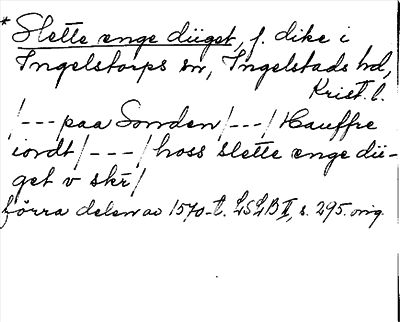 * Slette enge düget, f. dike i
Ingelstorps sn, Ingelstads hd,
Krist. l.
/---paa Sonden/---/Hauffre
iordt/---/hoss slette enge dü-
get v skr/
förra delen av 1570-t. LSLB II, s. 295. orig.